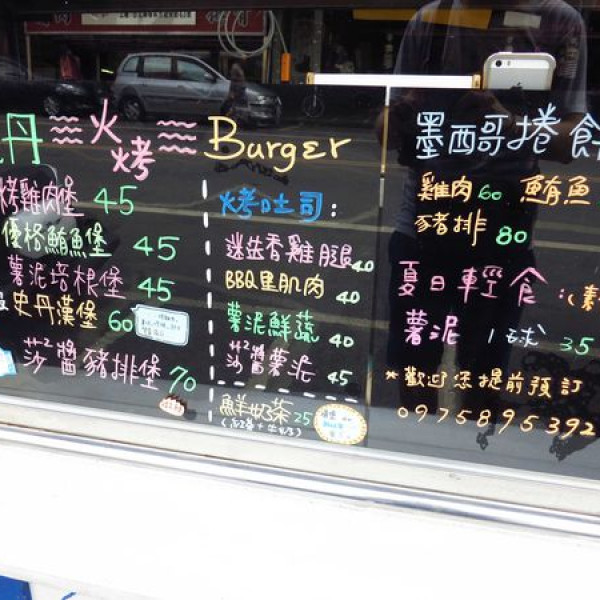 丹 火烤 Burger
烤雞肉堡 45
優格鮪魚堡 45
薯泥培根堡 45
史丹漢堡 60
莎莎醬豬排堡 70
烤吐司：
迷迭香雞腿 40
BBQ里肌肉 40
薯泥鮮蔬 40
莎莎醬薯泥 45
鮮奶茶 25
墨西哥捲餅
雞肉 60 鮪魚
豬排 80
夏日輕食：(素
薯泥 1球 35
*歡迎您提前預訂
0975895392